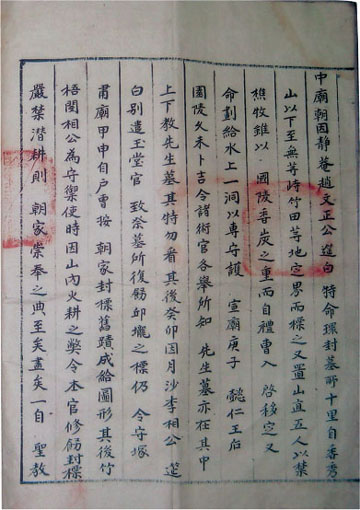 中廟朝因靜菴趙文正公筵白 特命環封墓所十里自香秀
山以下至無等時竹田等地定界而標之又置山直五人以禁
樵牧雖以 國陵香炭之重而自禮曹入 啓移定又
命劃給水上一洞以專守護 宣廟庚子 懿仁王后
國陵久未卜吉令諸術官各擧所知 先生墓亦在其中
上下敎先生墓其特勿看其後癸卯因月沙李相公 筵
白別遣玉堂官 致祭墓所復飭邱壠之標仍 令守塚
肅廟甲申自戶曹按 朝家封標舊蹟成給圖形其後竹
梧閔相公爲守禦使時因山內火耕之弊令本官修飭封標
嚴禁潛耕則 朝家崇奉之典至矣盡矣一自 聖敎